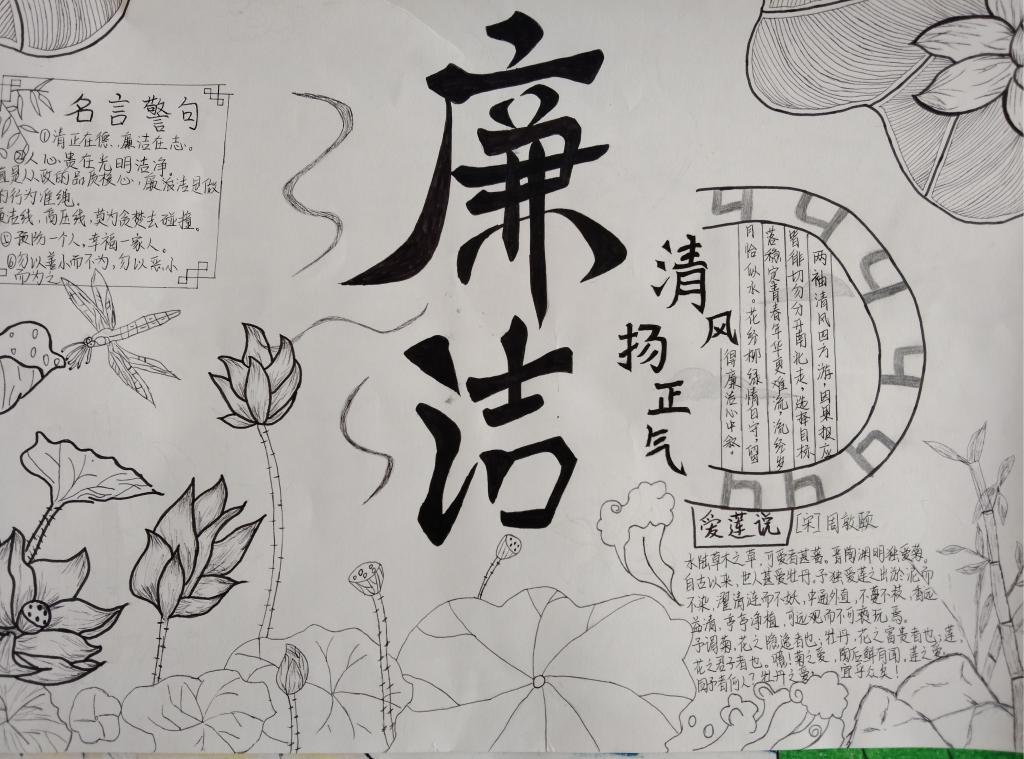 廉洁
名言警句
①清正在德、廉洁在志。
②人心贵在光明洁净。
直是从政的品质核心，廉洁是做
的行为准绳。
法线，高压线，莫为贪婪去碰撞。
预防一个人，幸福一家人。
⑥勿以善小而不为，勿以恶小
而为之
清风
扬正气
两袖清风四方游，因果报应
皆能切勿分开南北走，选择目标
落稳定青春年华更难流，流经岁
月恰似水。花纷柳绿情自守，留
得廉洁心中察。
爱莲说
[宋]周敦颐
水陆草木之草，可爱者甚蕃。晋陶渊明独爱菊。
自古以来，世人甚爱牡丹，予独爱莲之出於泥而
不染，濯清涟而不妖，中通外直，不蔓不枝，香远
益清，亭亭净植，可远观而不可亵玩焉。
予谓菊，花之隐逸者也；牡丹，花之富贵者也；莲，
花之君子者也。噫！菊之爱，陶后鲜有闻，莲之爱，
同予者何人？牡丹之爱，宜乎众矣！